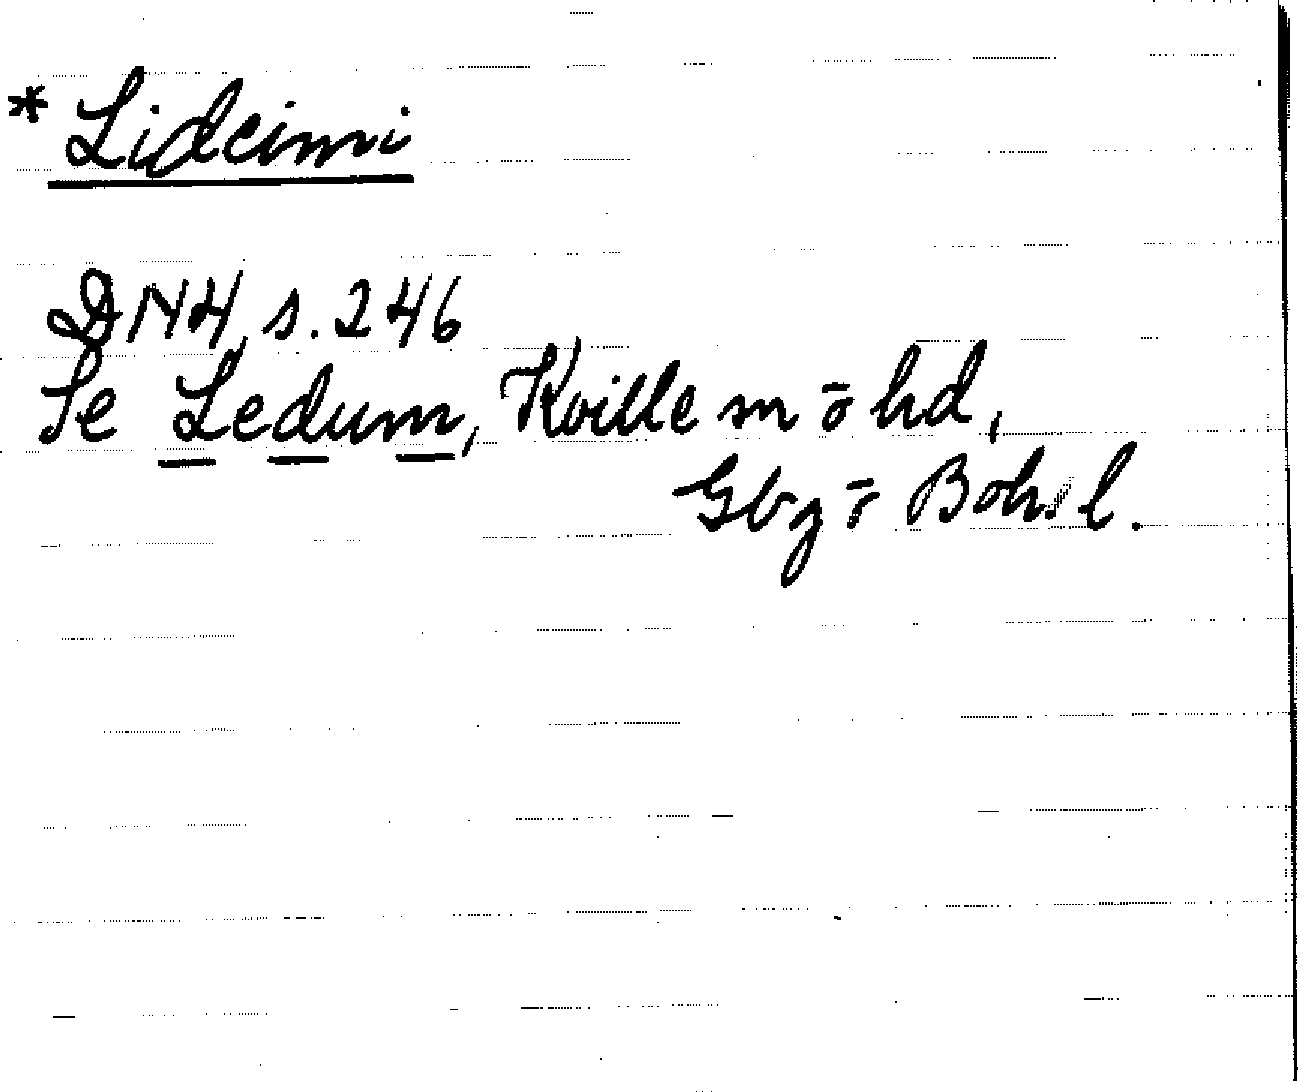 * Lideimi
DN4 s. 246
Se Ledum, Kville sn o hd,
Gbg o Bohusl.